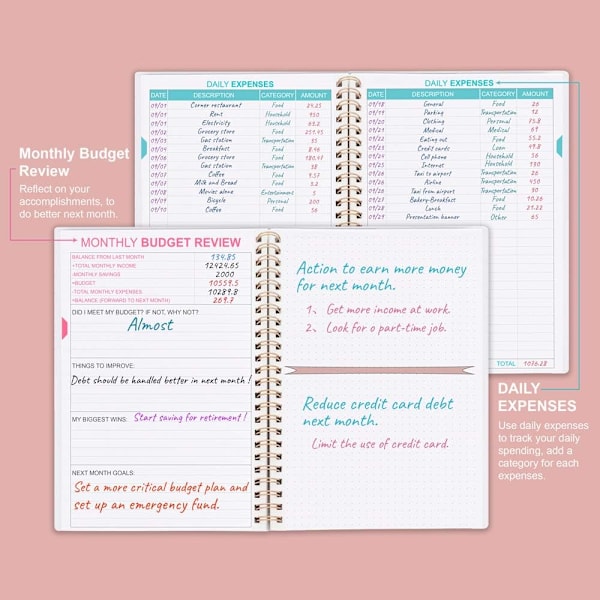 DAILY EXPENSES
DATE DESCRIPTION CATEGORY AMOUNT
09/01 Corner restaurant Food 24.25
09/01 Rent Household 950
09/01 Electricity Household 65.2
09/02 Grocery store Food 251.45
09/05 Gas station Transportation 35
09/06 Breakfast Food 8.46
09/06 Grocery store Food 180.47
09/07 Gas station Transportation 38
09/07 Coffee Food 4.57
09/07 Milk and Bread Food 3.2
09/08 Movies alone Entertainment 5
09/09 Bicycle Personal 200
09/10 Coffee Food 56
DAILY EXPENSES
DATE DESCRIPTION CATEGORY AMOUNT
09/18 General Food 26
09/19 Parking Transportation 12
09/20 Clothing Personal 75.8
09/21 Medical Medical 69
09/22 Eating out Food 55.2
09/23 Credit cards Loan 49.8
09/24 Cell phone Household 56
Internet Household 130
09/26 Taxi to airport Transportation 26
09/26 Airline Transportation 450
09/27 Taxi from airport Transportation 30
09/27 Bakery-Breakfast Food 10.26
Lunch Food 21.22
09/29 Presentation banner Other 65
TOTAL 1076.28
Monthly Budget
Review
Reflect on your
accomplishments, to
do better next month.
MONTHLY BUDGET REVIEW
BALANCE FROM LAST MONTH 134.85
+TOTAL MONTHLY INCOME 12424.65
-MONTHLY SAVINGS 2000
=BUDGET 10559.5
-TOTAL MONTHLY EXPENSES 10289.8
=BALANCE (FORWARD TO NEXT MONTH) 269.7
DID I MEET MY BUDGET? IF NOT, WHY NOT?
Almost
THINGS TO IMPROVE:
Debt should be handled better in next month!
MY BIGGEST WINS: Start saving for retirement!
NEXT MONTH GOALS:
Set a more critical budget plan and
set up an emergency fund.
Action to earn more money
for next month.
1、 Get more income at work.
2、 Look for a part-time job.
Reduce credit card debt
next month.
Limit the use of credit card.
DAILY
EXPENSES
Use daily expenses
to track your daily
spending, add a
category for each
expenses.